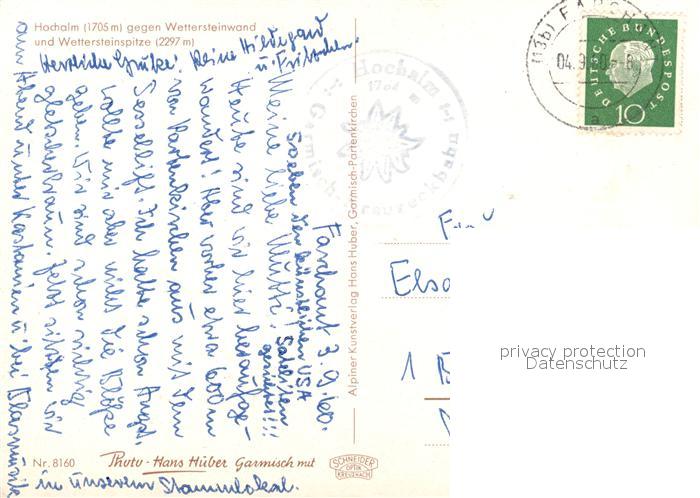 Hochalm (1705 m) gegen Wettersteinwand
und Wettersteinspitze (2297 m)
Farchant 3.9.60.
Meine liebe Mutti!
soeben den künstlichen USA
Satelliten
gesehen!!!
Heute sind wir hier heraufge-
wandert! Aber vorher etwa 600m
von Partenkirchen aus mit dem
Sessellift. Ich hatte schon Angst,
wollte mir aber nicht die Blöße
geben. Wir sind schon richtig
gletscherbraun. Jetzt sitzen wir
am Abend unter Kastanien u. bei Blasmusik
in unserem Stammlokal.
Herzliche Grüße! Deine Hildegard
u. Fritzchen.
Hochalm
1704 m
Garmisch-Kreuzeckbahn
Alpiner Kunstverlag Hans Huber, Garmisch-Partenkirchen
(13b) FARCH
04.9.60.-8
a
DEUTSCHE BUNDESPOST
10
Frau
Elsa
1 B
privacy protection
Datenschutz
Nr. 8160
Photo - Hans Huber Garmisch mit
SCHNEIDER
OPTIK
KREUZNACH